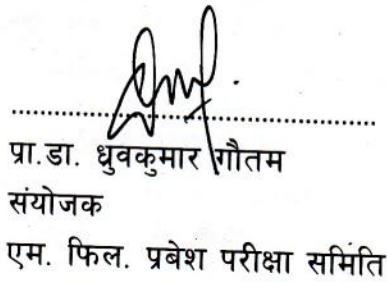 प्रा.डा. ध्रुवकुमार गौतम
संयोजक
एम. फिल. प्रबेश परीक्षा समिति